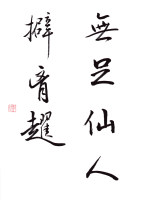 無足仙人
擗趯